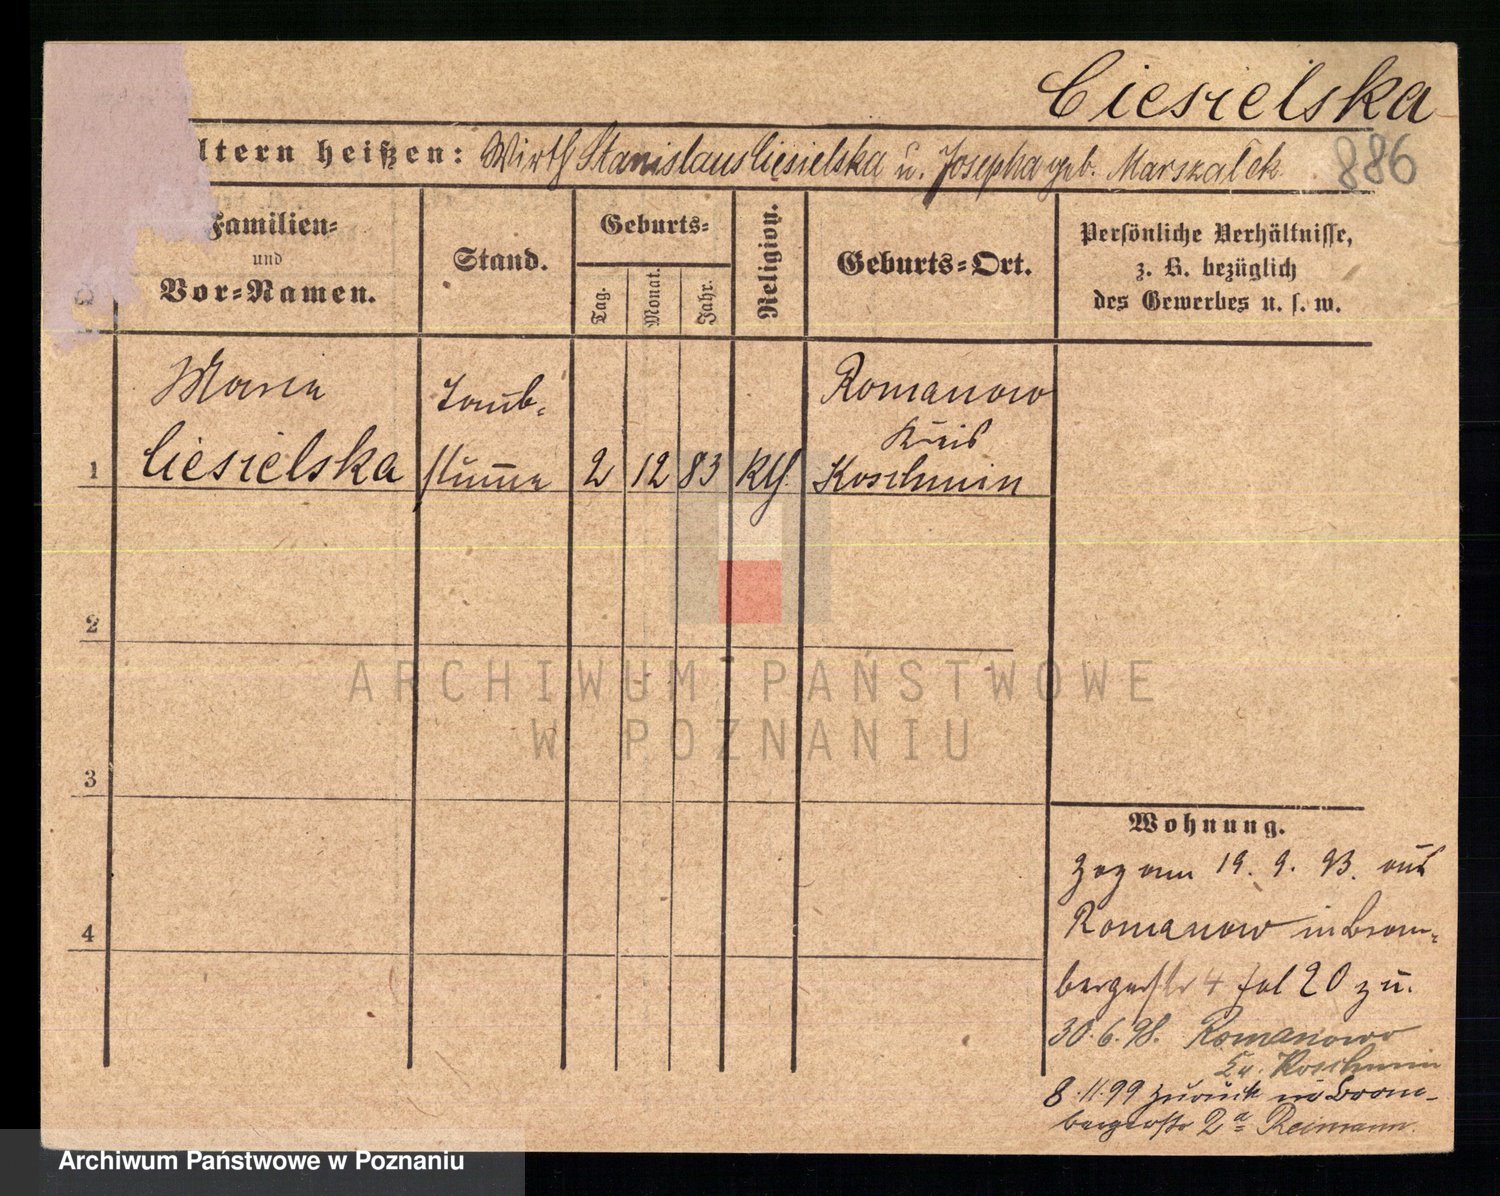 Ciesielska
ltern heißen: Wirth Stanislaus Ciesielska u. Josepha geb. Marszalek
886
Familien=
und
Vor=Namen.
Stand.
Geburts=
Tag.
Monat.
Jahr.
Religion.
Geburts=Ort.
Persönliche Verhältnisse,
z. B. bezüglich
des Gewerbes u. s. w.
Maria
Ciesielska
Taub-
stumm
2
12
83
kth.
Romanowo
Kreis
Koschmin
1
2
3
4
Wohnung.
Zog am 19. 9. 93. aus
Romanow in Brom-
bergerstr 4 fol 20 zu.
30.6.98. Romanowo
Kr. Koschmin
8.11.99 zurück in Brom-
bergerstr 2a Reimann.
ARCHIWUM PAŃSTWOWE
W POZNANIU
Archiwum Państwowe w Poznaniu